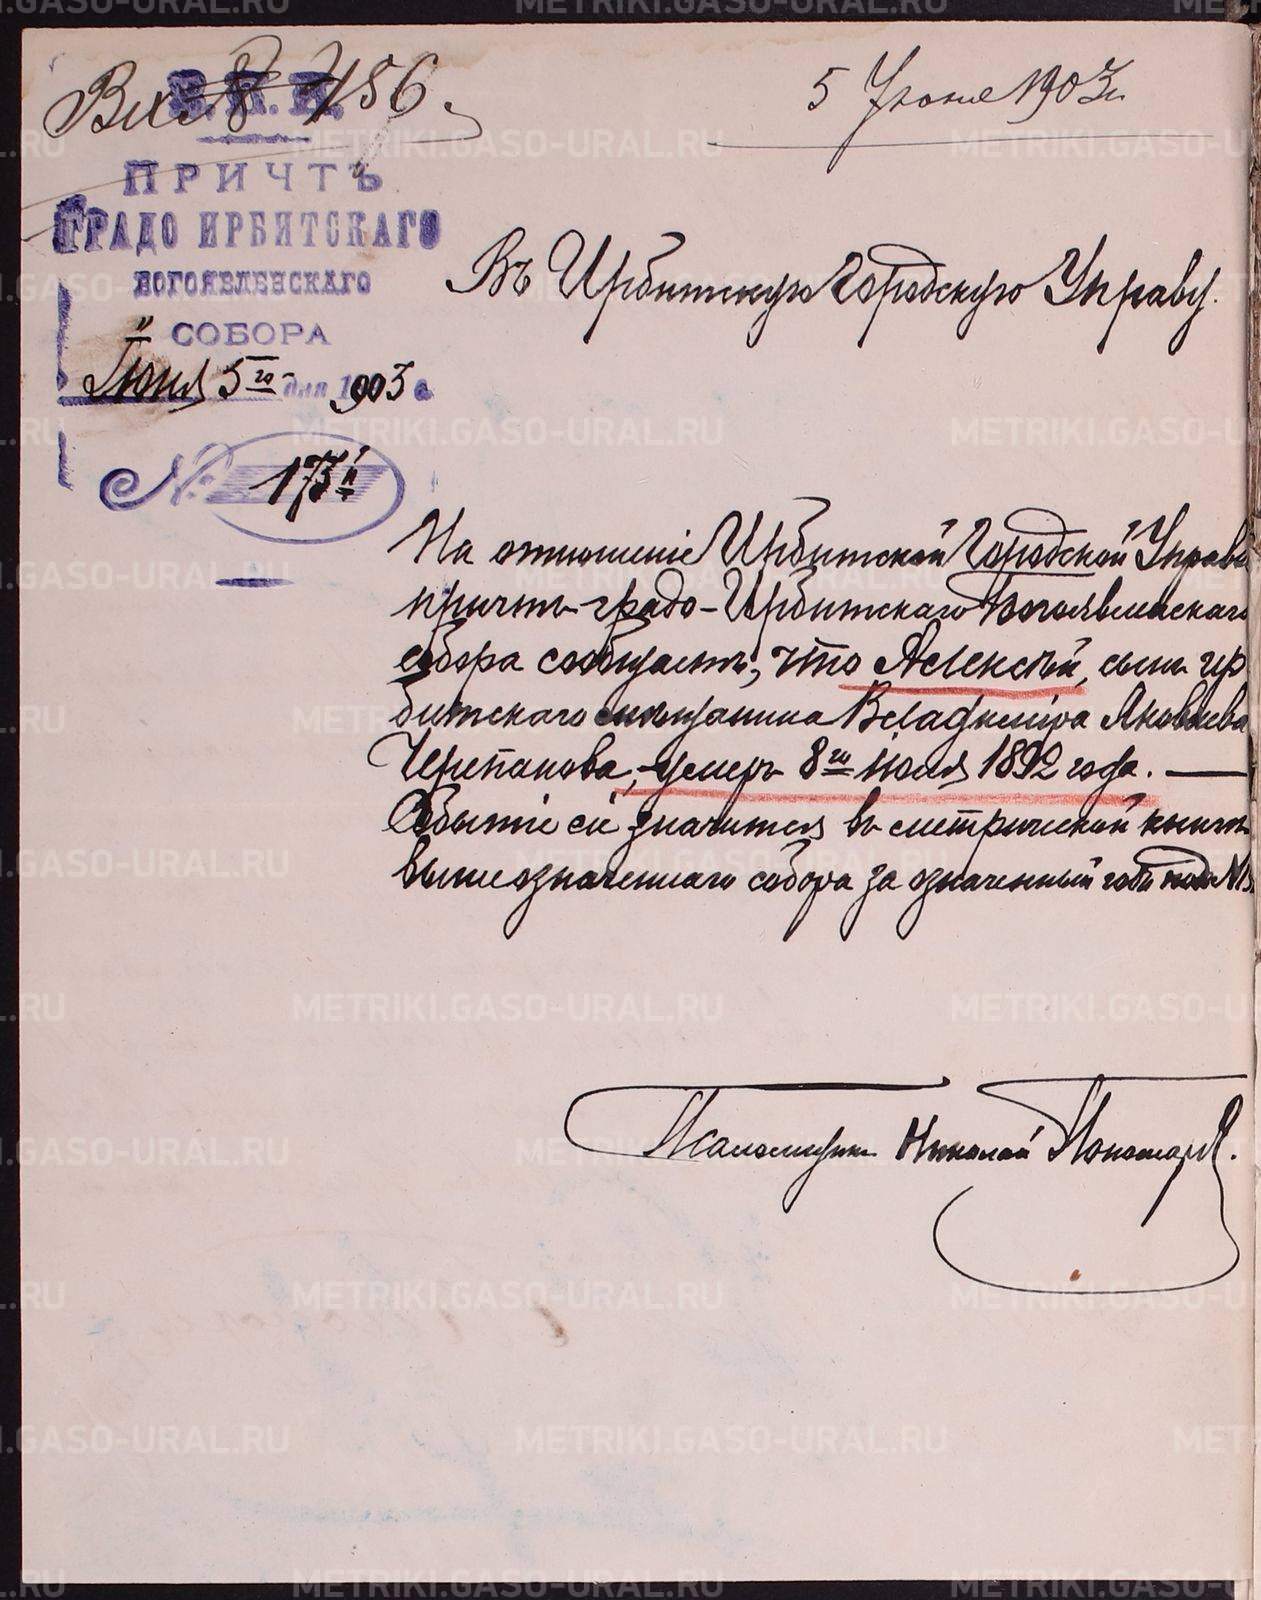 Вх № 7156.
5 Июня 1903 г.
В. П. И.
ПРИЧТЪ
ГРАДО ИРБИТСКАГО
БОГОЯВЛЕНСКАГО
СОБОРА
Іюня 5го дня 1903 г.
№ 173
Въ Ирбитскую Городскую Управу.
На отношеніе Ирбитской Городской Управы
причтъ градо-Ирбитскаго Богоявленскаго
собора сообщаетъ, что Алексѣй, сынъ ир
битскаго мѣщанина Владиміра Яковлева
Черепанова, умеръ 8го іюля 1892 года. —
Событіе сіе значится въ метрической книгѣ
вышеозначеннаго собора за означенный годъ подъ №
Псаломщикъ Николай Пономарев.
METRIKI.GASO-URAL.RU